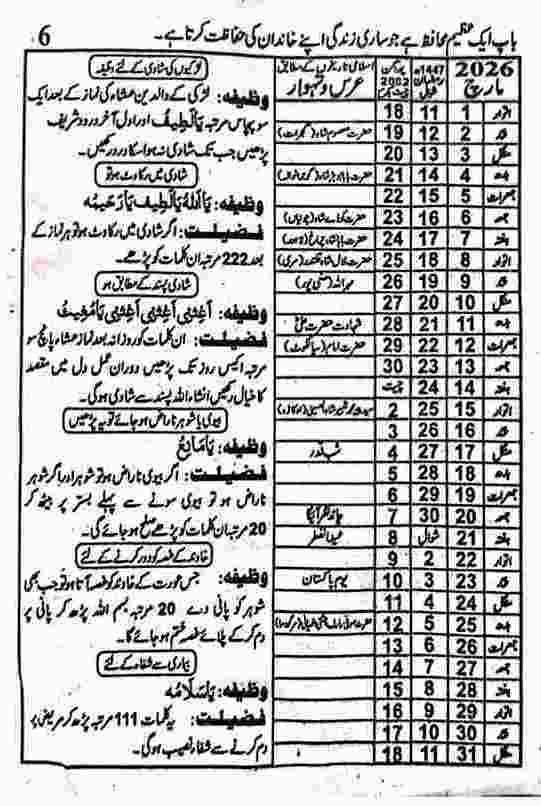 باپ ایک عظیم محافظ ہے جو ساری زندگی اپنے خاندان کی حفاظت کرتا ہے۔ 6
2026 مارچ 1447ھ رمضان شوال 2082 اسلامی تاریخوں کے مطابق عرس و تہوار
اتوار 1 11 18
پیر 2 12 19 حضرت معصوم شاہ (گجرات)
منگل 3 13 20
بدھ 4 14 21
جمعرات 5 15 22
جمعہ 6 16 23
ہفتہ 7 17 24
اتوار 8 18 25
پیر 9 19 26
منگل 10 20 27
بدھ 11 21 28 شہادت حضرت علیؓ
جمعرات 12 22 29 (سیالکوٹ)
جمعہ 13 23 30
ہفتہ 14 24 چیت
اتوار 15 25 2
پیر 16 26 3
منگل 17 27 4 شب قدر
بدھ 18 28 5
جمعرات 19 29 6
جمعہ 20 30 7 چاند نظر آئیگا
ہفتہ 21 شوال 8 عید الفطر
اتوار 22 2 9
پیر 23 3 10 یوم پاکستان
منگل 24 4 11
بدھ 25 5 12
جمعرات 26 6 13
جمعہ 27 7 14
ہفتہ 28 8 15
اتوار 29 9 16
پیر 30 10 17
منگل 31 11 18
لڑکیوں کی شادی کے لئے وظیفہ
وظیفہ: لڑکی کے والدین عشاء کی نماز کے بعد ایک
سو پچاس مرتبہ یَالَطِیفُ اور اول آخر درود شریف
پڑھیں جب تک شادی نہ ہو اسکا ورد رکھیں۔
شادی میں رکاوٹ ہو تو
وظیفہ: یَااَللهُ یَالَطِیفُ یَارَحِیْمُ
فضیلت: اگر شادی میں رکاوٹ ہو تو ہر نماز کے
بعد 222 مرتبہ ان کلمات کو پڑھے۔
شادی پسند کے مطابق ہو
وظیفہ: اَغِثْنِی اَغِثْنِی اَغِثْنِی یَامُغِیثُ
فضیلت: ان کلمات کو روزانہ بعد نماز عشاء پانچ سو
مرتبہ اکیس روز تک پڑھیں دوران عمل دل میں مقصد
کا خیال رکھیں انشاء اللہ پسند سے شادی ہوگی۔
بیوی یا شوہر ناراض ہو جائے تو یہ پڑھیں
وظیفہ: یَامَانِعُ
فضیلت: اگر بیوی ناراض ہو تو شوہر اور اگر شوہر
ناراض ہو تو بیوی سونے سے پہلے بستر پر بیٹھ کر
20 مرتبہ ان کلمات کو پڑھے صلح ہو جائے گی۔
خاوند کے غصہ کو دور کرنے کے لئے
وظیفہ: جس عورت کے خاوند کو غصہ آتا ہو تو جب بھی
شوہر کو پانی دے 20 مرتبہ بسم اللہ پڑھ کر پانی پر
دم کر کے پلائے غصہ ختم ہو جائے گا۔
بیماری سے شفاء کے لئے
وظیفہ: یَاسَلَامُ
فضیلت: یہ کلمات 111 مرتبہ پڑھ کر مریض پر
دم کرنے سے شفاء نصیب ہوگی۔